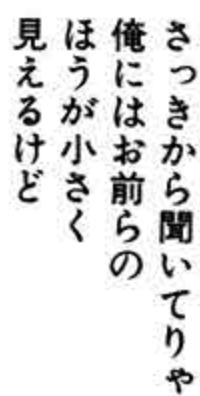 さっきから聞いてりゃ
俺にはお前らの
ほうが小さく
見えるけど